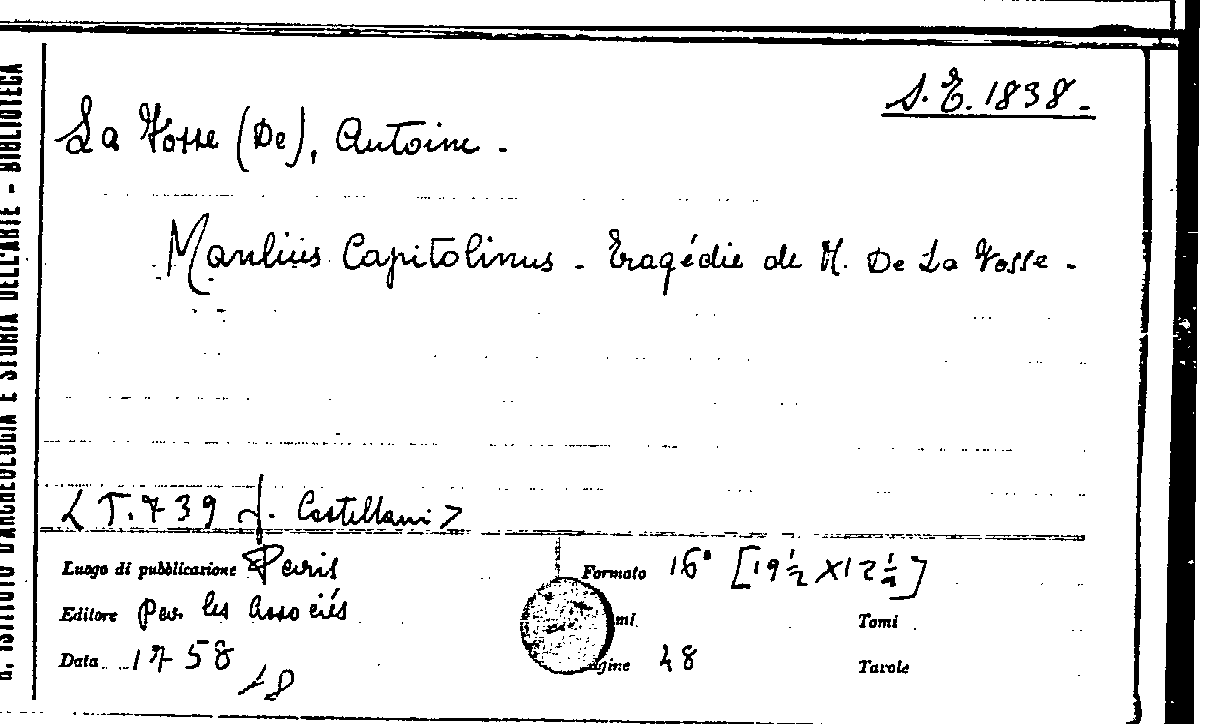 S. E. 1838.
La Fosse (De), Antoine.
Manlius Capitolinus. Tragédie de M. De La Fosse.
< T. 739 d. Castellani >
Luogo di pubblicazione Paris
Formato 16° [19 ½ X 12 ½]
Editore par les Associés
Tomi
Data 1758
Pagine 48
Tavole
18
R. ISTITUTO D'ARCHEOLOGIA E STORIA DELL'ARTE - BIBLIOTECA